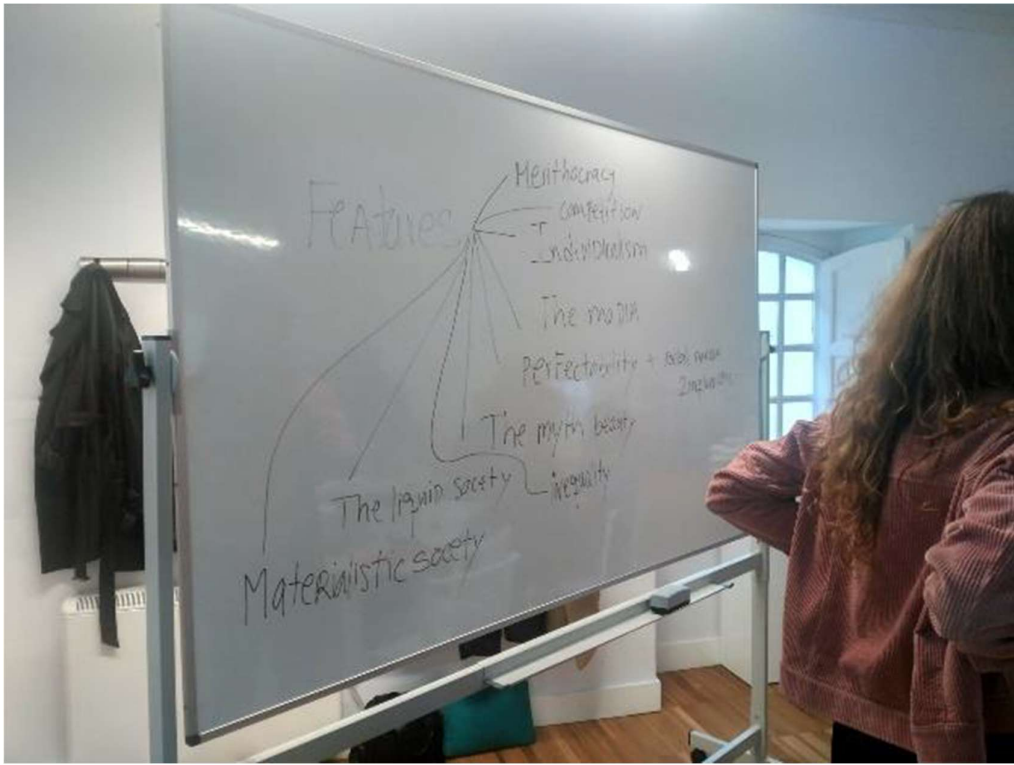 Features
Merithocracy
competition
Individualism
The media
Perfectability +
The myth beauty
inequality
The liquid society
Materialistic socety